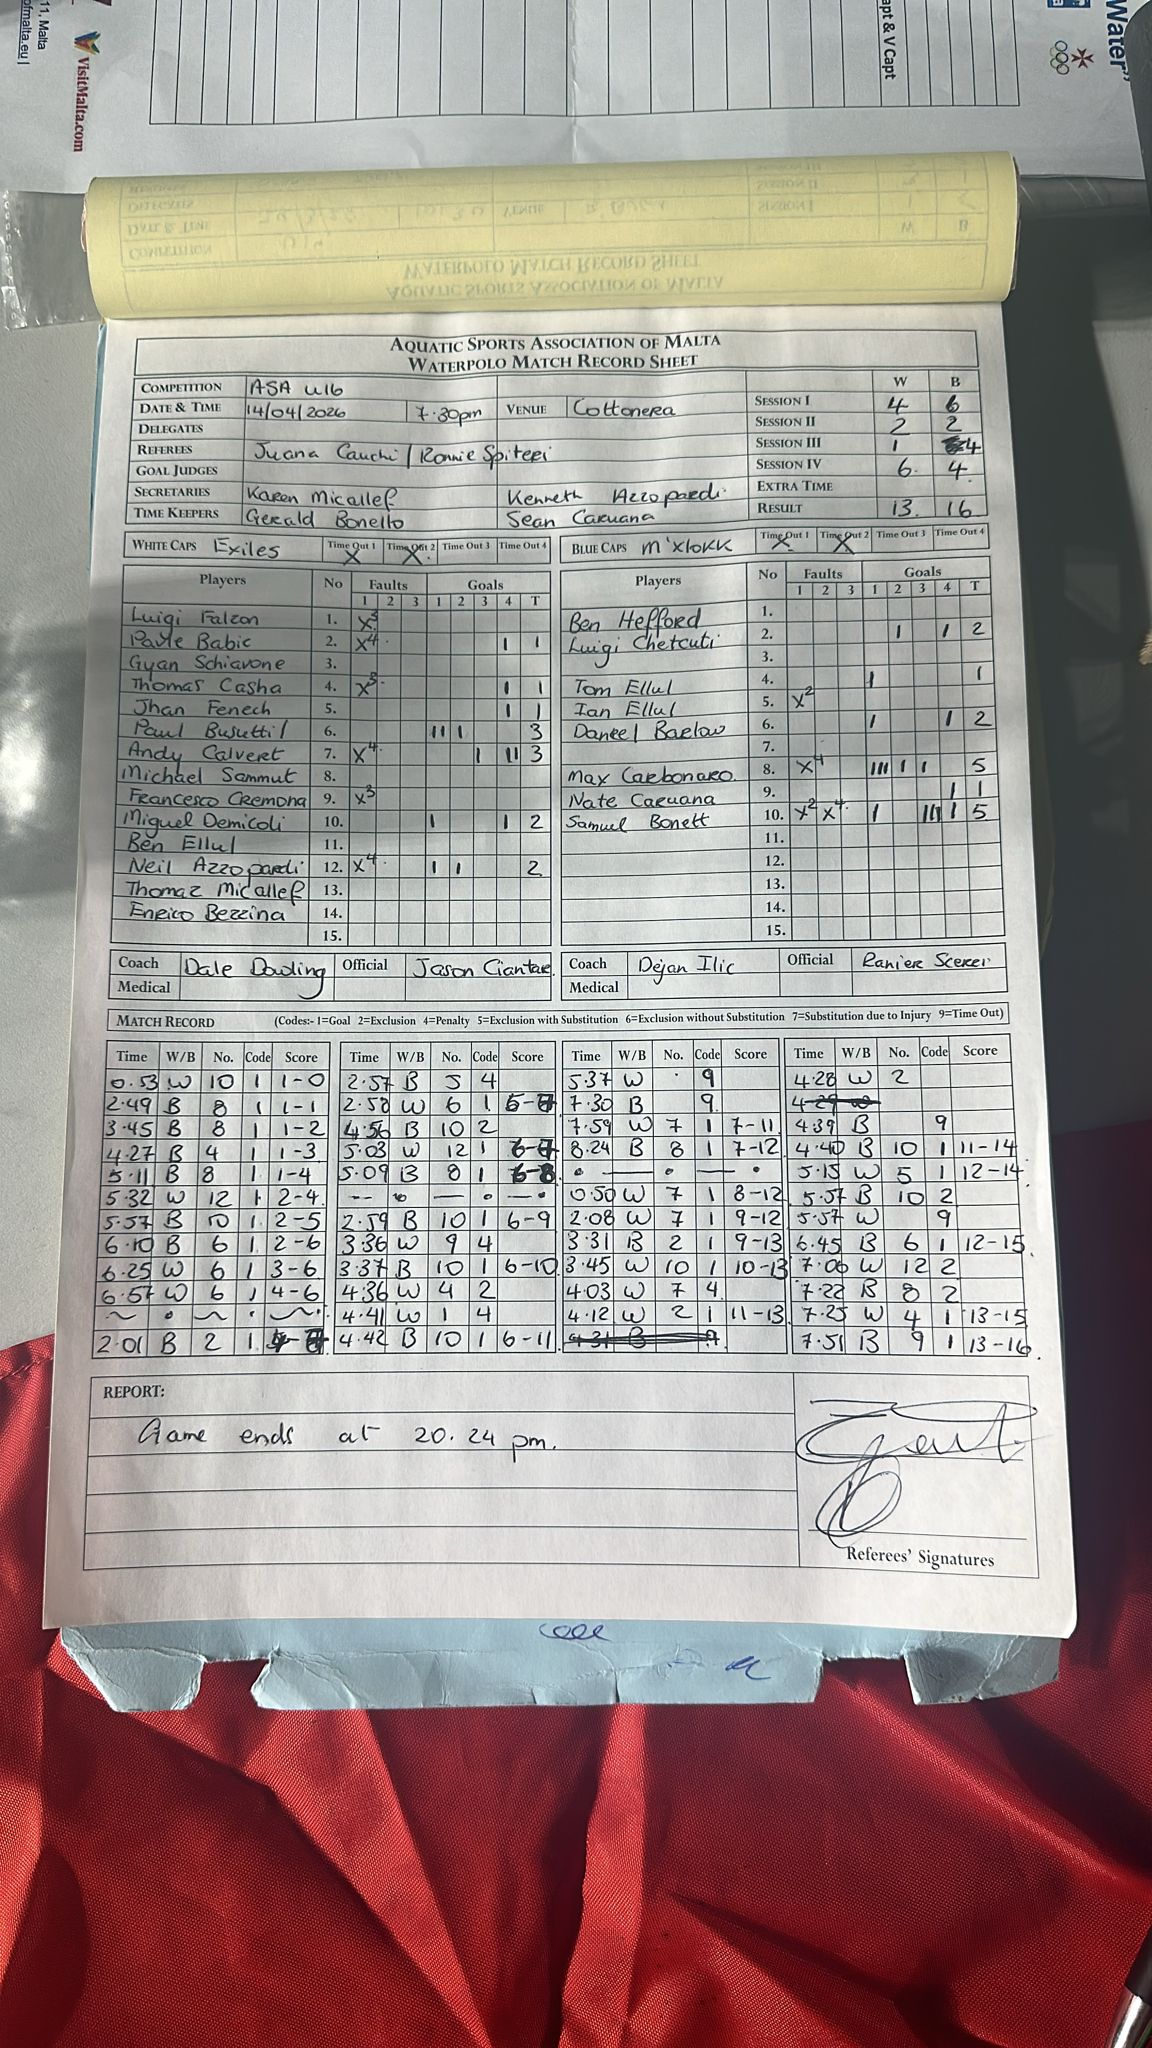 11, Malta
ofmalta.eu |
VisitMalta.com
apt & V Capt
Water"
AQUATIC SPORTS ASSOCIATION OF MALTA
WATERPOLO MATCH RECORD SHEET
COMPETITION ASA U16 W B
DATE & TIME 14/04/2026 7.30pm VENUE Cottonera SESSION I 4 6
DELEGATES SESSION II 2 2
REFEREES Juana Cauchi / Ronnie Spiteri SESSION III 1 4
GOAL JUDGES SESSION IV 6. 4.
SECRETARIES Karen Micallef Kenneth Azzopardi EXTRA TIME
TIME KEEPERS Gerald Bonello Sean Caruana RESULT 13. 16
WHITE CAPS Exiles Time Out 1 X Time Out 2 X Time Out 3 Time Out 4
BLUE CAPS M'Xlokk Time Out 1 X Time Out 2 X Time Out 3 Time Out 4
Players No Faults Goals
1 2 3 1 2 3 4 T
Luigi Falzon 1. X5
Pavle Babic 2. X4 I 1
Gyan Schiavone 3.
Thomas Casha 4. X5 I 1
Jhan Fenech 5. I 1
Paul Busuttil 6. III I 3
Andy Calvert 7. X4 I II 3
Michael Sammut 8.
Francesco Cremona 9. X3
Miguel Demicoli 10. I I 2
Ben Ellul 11.
Neil Azzopardi 12. X4 I I 2
Thomaz Micallef 13.
Enrico Bezzina 14.
15.
Players No Faults Goals
1 2 3 1 2 3 4 T
Ben Hefford 1.
Luigi Chetcuti 2. I I 2
3.
Tom Ellul 4. I 1
Ian Ellul 5. X2
Daniel Barlow 6. I I 2
7.
Max Carbonaro 8. X4 III I I 5
Nate Caruana 9. I 1
Samuel Bonett 10. X2 X4 I III I 5
11.
12.
13.
14.
15.
Coach Dale Dowling Official Jason Ciantar
Medical
Coach Dejan Ilic Official Ranier Scerri
Medical
MATCH RECORD (Codes:- 1=Goal 2=Exclusion 4=Penalty 5=Exclusion with Substitution 6=Exclusion without Substitution 7=Substitution due to Injury 9=Time Out)
Time W/B No. Code Score
0.53 W 10 1 1-0
2.49 B 8 1 1-1
3.45 B 8 1 1-2
4.27 B 4 1 1-3
5.11 B 8 1 1-4
5.32 W 12 1 2-4
5.57 B 10 1 2-5
6.10 B 6 1 2-6
6.25 W 6 1 3-6
6.57 W 6 1 4-6
2.01 B 2 1
Time W/B No. Code Score
2.57 B 5 4
2.58 W 6 1 5-7
4.56 B 10 2
5.03 W 12 1 6-7
5.09 B 8 1 6-8
2.59 B 10 1 6-9
3.36 W 9 4
3.37 B 10 1 6-10
4.36 W 4 2
4.41 W 1 4
4.42 B 10 1 6-11
Time W/B No. Code Score
5.37 W 9
7.30 B 9
7.59 W 7 1 7-11
8.24 B 8 1 7-12
0.50 W 7 1 8-12
2.08 W 7 1 9-12
3.31 B 2 1 9-13
3.45 W 10 1 10-13
4.03 W 7 4
4.12 W 2 1 11-13
4.31 B 9
Time W/B No. Code Score
4.28 W 2
4.29 W
4.39 B 9
4.40 B 10 1 11-14
5.15 W 5 1 12-14
5.57 B 10 2
5.57 W 9
6.45 B 6 1 12-15
7.06 W 12 2
7.22 B 8 2
7.25 W 4 1 13-15
7.51 B 9 1 13-16
REPORT:
Game ends at 20.24 pm.
Referees' Signatures